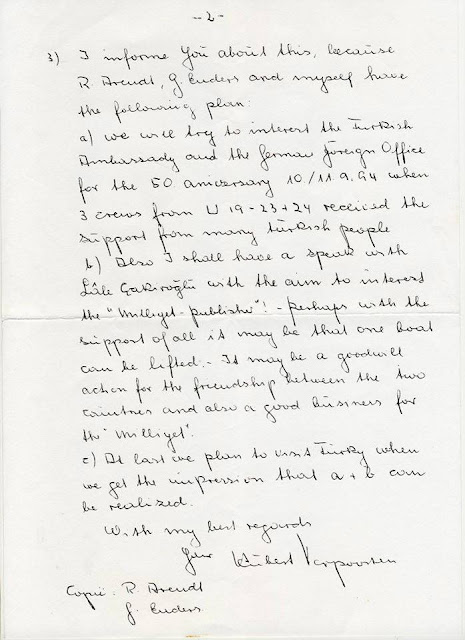 - 2 -
3) I informe You about this, because
R. Arendt, G. Enders and myself have
the following plan:
a) we will try to interest the Turkish
Ambassady and the German Foreign Office
for the 50 aniversary 10/11.9.94 when
3 crews from U 19-23+24 received the
support from many turkish people
b) Also I shall have a speak with
Lâle Çakiroğlu with the aim to interest
the "Milliyet-publisher"! - perhaps with the
support of all it may be that one boat
can be lifted. - It may be a goodwill
action for the friendship between the two
countries and also a good business for
the "Milliyet".
c) At last we plan to visit Turky when
we get the impression that a + b can
be realized.
With my best regards
Your Hubert Verpoorten
Copie: R. Arendt
G. Enders